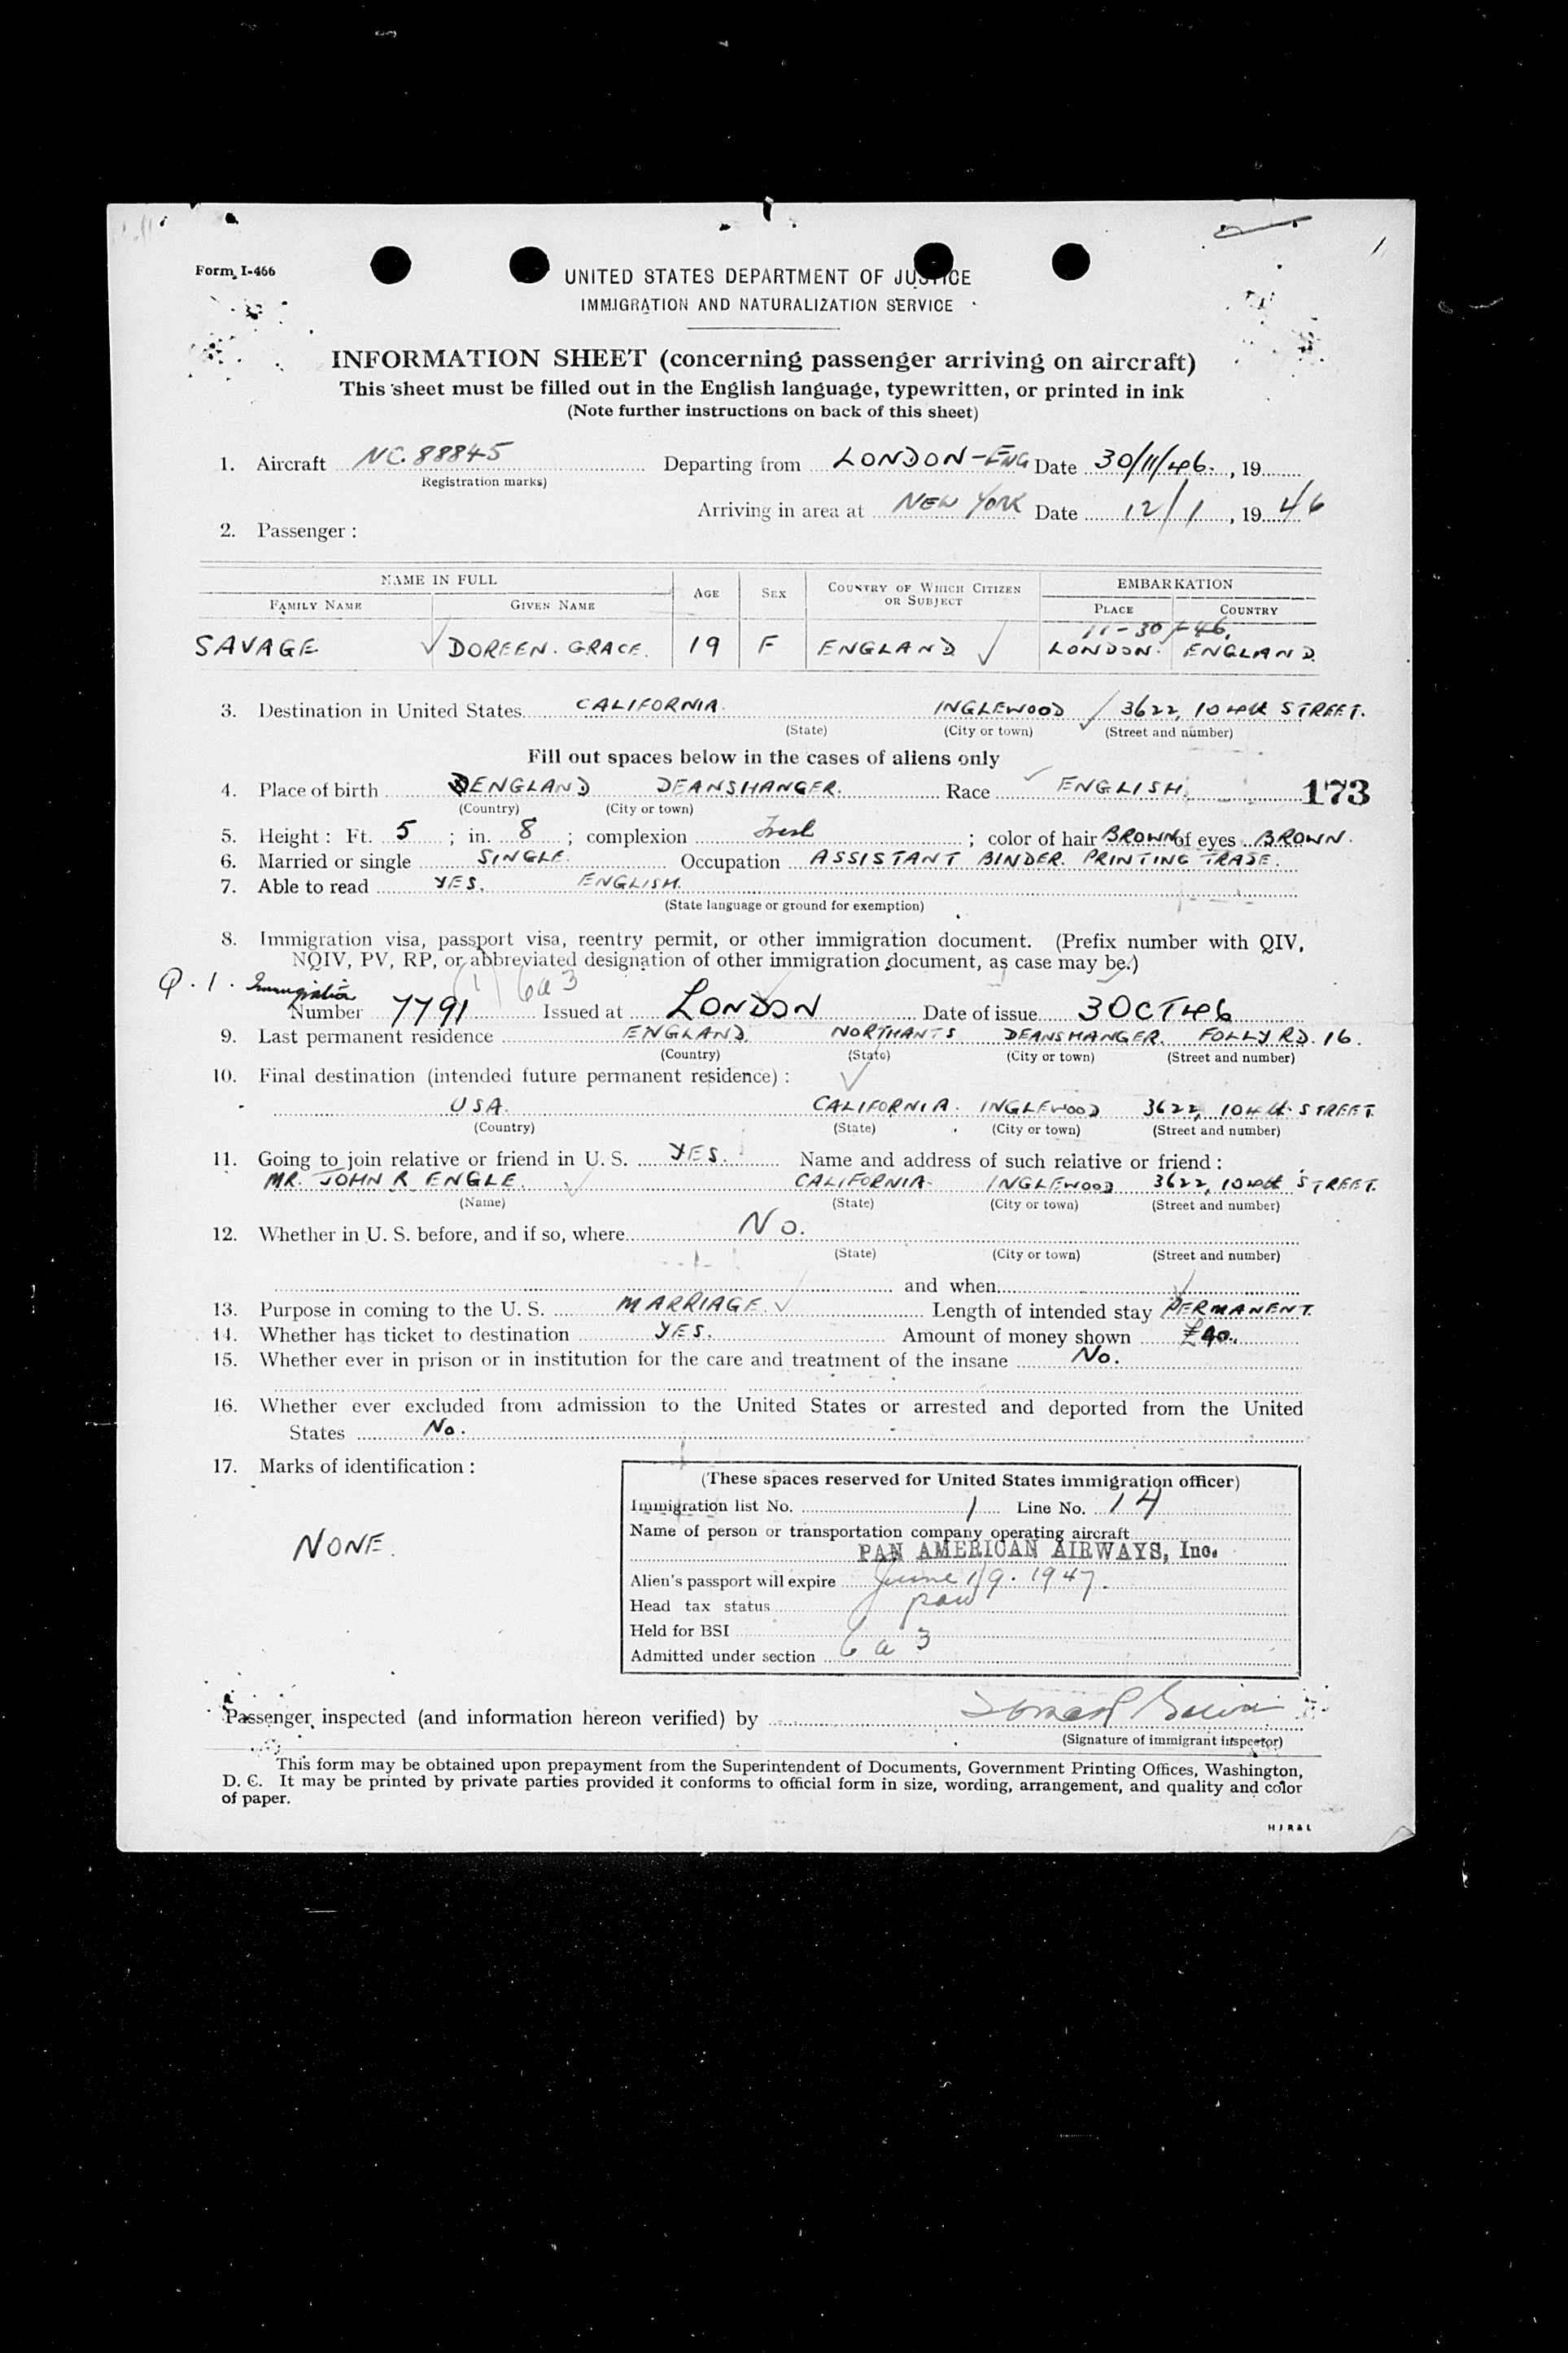 Form I-466
UNITED STATES DEPARTMENT OF JUSTICE
IMMIGRATION AND NATURALIZATION SERVICE
INFORMATION SHEET (concerning passenger arriving on aircraft)
This sheet must be filled out in the English language, typewritten, or printed in ink
(Note further instructions on back of this sheet)
1. Aircraft NC. 88845 Departing from LONDON-ENG Date 30/11/46. , 19
Registration marks)
Arriving in area at NEW YORK Date 12/1, 1946
2. Passenger :
NAME IN FULL AGE SEX COUNTRY OF WHICH CITIZEN OR SUBJECT EMBARKATION
FAMILY NAME GIVEN NAME PLACE COUNTRY
11-30-46.
SAVAGE DOREEN. GRACE. 19 F ENGLAND LONDON. ENGLAND.
3. Destination in United States CALIFORNIA. INGLEWOOD 3622, 104th STREET.
(State) (City or town) (Street and number)
Fill out spaces below in the cases of aliens only
4. Place of birth ENGLAND DEANSHANGER. Race ENGLISH. 173
(Country) (City or town)
5. Height : Ft. 5 ; in. 8 ; complexion Fresh ; color of hair BROWN of eyes BROWN.
6. Married or single SINGLE. Occupation ASSISTANT BINDER. PRINTING TRADE.
7. Able to read YES. ENGLISH.
(State language or ground for exemption)
8. Immigration visa, passport visa, reentry permit, or other immigration document. (Prefix number with QIV,
NQIV, PV, RP, or abbreviated designation of other immigration document, as case may be.)
Q. I. Immigration (1) 6a3
Number 7791 Issued at LONDON Date of issue 3 OCT 46
9. Last permanent residence ENGLAND. NORTHANTS. DEANSHANGER. FOLLY RD. 16.
(Country) (State) (City or town) (Street and number)
10. Final destination (intended future permanent residence) :
USA. CALIFORNIA. INGLEWOOD 3622, 104th STREET.
(Country) (State) (City or town) (Street and number)
11. Going to join relative or friend in U. S. YES. Name and address of such relative or friend :
MR. JOHN R ENGLE. CALIFORNIA. INGLEWOOD 3622, 104th STREET.
(Name) (State) (City or town) (Street and number)
12. Whether in U. S. before, and if so, where NO.
(State) (City or town) (Street and number)
and when
13. Purpose in coming to the U. S. MARRIAGE. Length of intended stay PERMANENT.
14. Whether has ticket to destination YES. Amount of money shown
15. Whether ever in prison or in institution for the care and treatment of the insane No.
16. Whether ever excluded from admission to the United States or arrested and deported from the United
States No.
17. Marks of identification :
NONE.
(These spaces reserved for United States immigration officer)
Immigration list No. 1 Line No. 14
Name of person or transportation company operating aircraft
PAN AMERICAN AIRWAYS, Inc.
Alien's passport will expire June 19. 1947.
Head tax status
Held for BSI
Admitted under section 6 a 3
Passenger inspected (and information hereon verified) by
(Signature of immigrant inspector)
This form may be obtained upon prepayment from the Superintendent of Documents, Government Printing Offices, Washington,
D. C. It may be printed by private parties provided it conforms to official form in size, wording, arrangement, and quality and color
of paper.
HJR&L